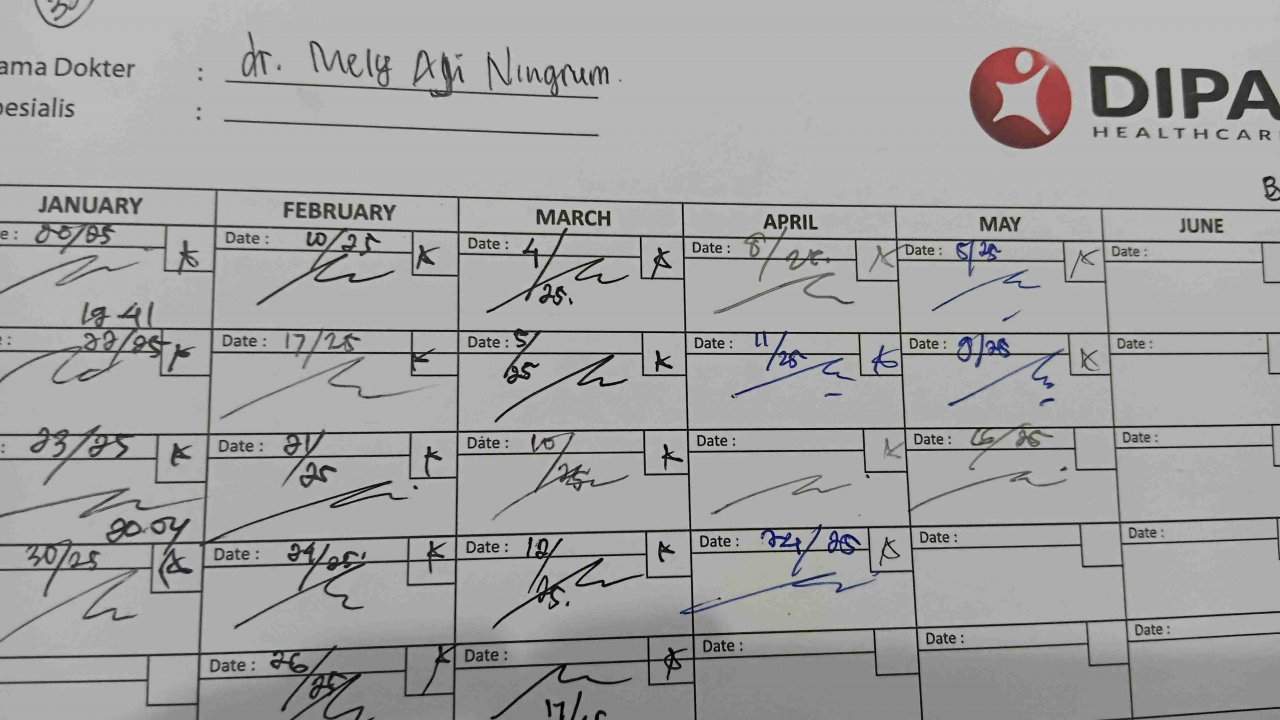 30
ama Dokter : dr. Mely Agi Ningrum.
esialis :
DIPA
HEALTHCAR
B
JANUARY FEBRUARY MARCH APRIL MAY JUNE
e: 20/25 Date: 10/25 Date: 4/25. Date: 8/25. Date: 5/25 Date:
19 41
: 22/25 Date: 17/25 Date: 5/25 Date: 11/25 Date: 9/25 Date:
: 23/25 Date: 21/25 Date: 10/25 Date: Date: 16/25 Date:
20.04
30/25 Date: 24/25 Date: 12/25. Date: 24/25 Date: Date:
Date: 26/25 Date: Date: Date: Date:
17/25